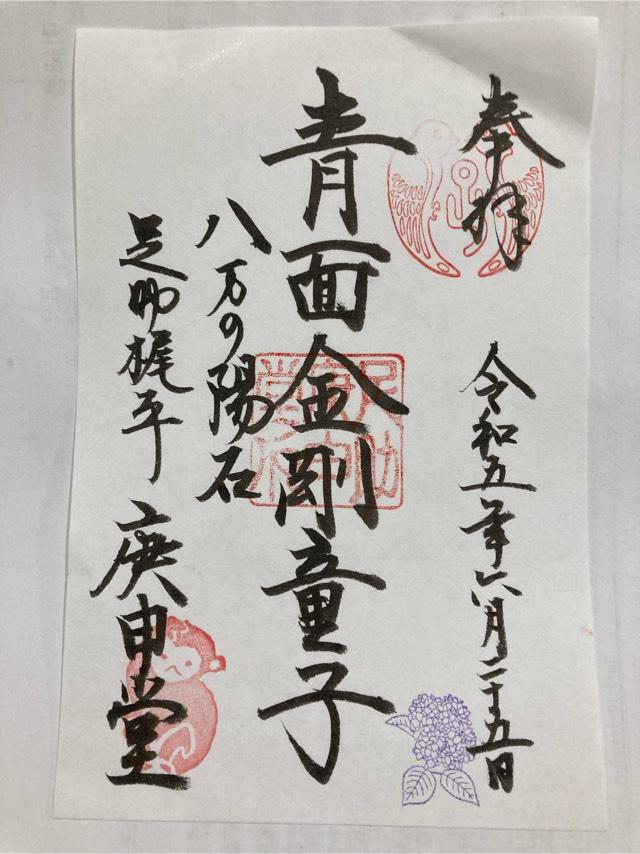 奉拝
令和五年六月二十五日
青面金剛童子
八万の陽石
足助梶平 庚申堂